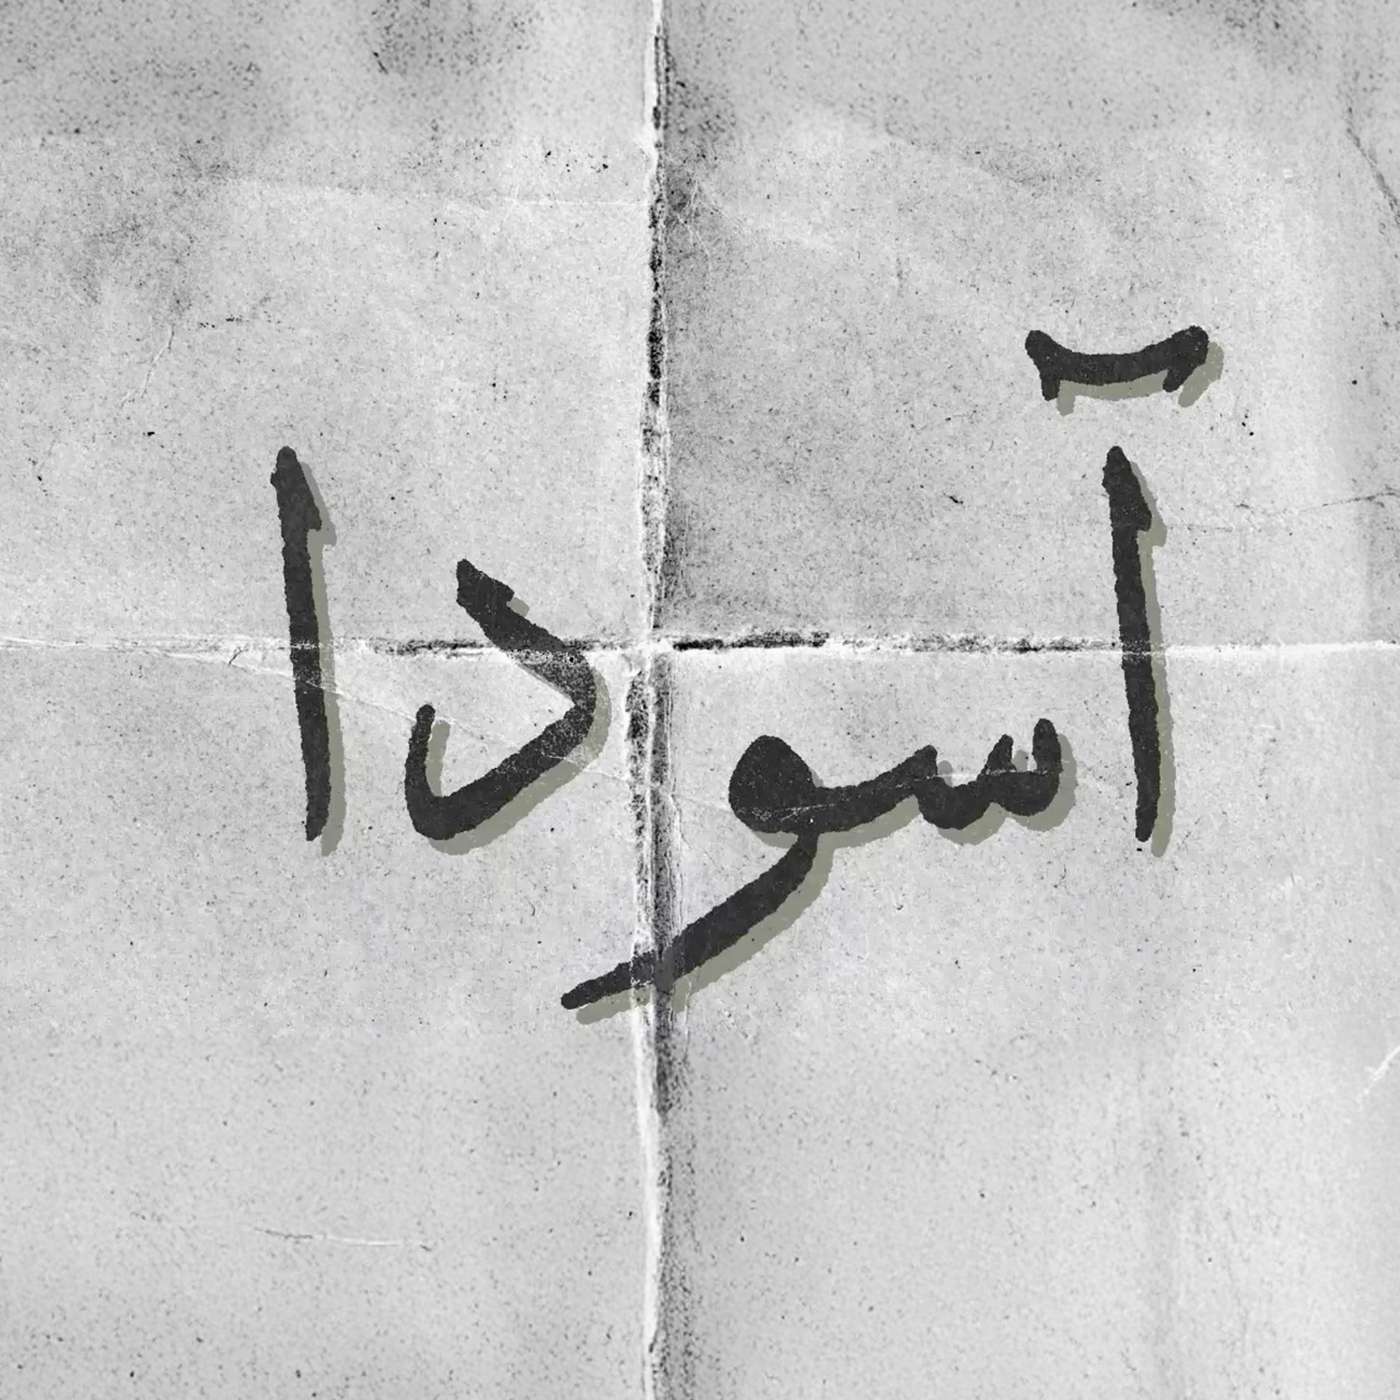 آسودا